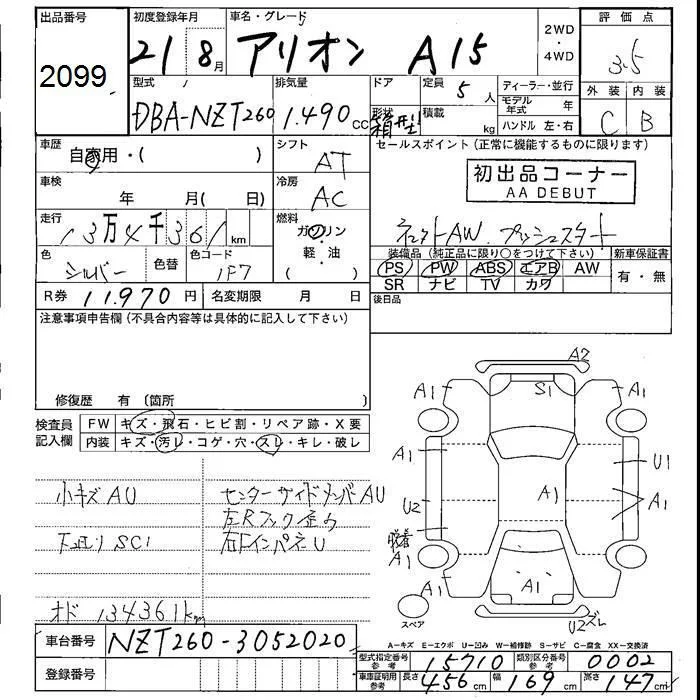 出品番号 初度登録年月 車名・グレード 2WD ・ 4WD 評価点
2099 21 8月 アリオン A15 3.5
型式 排気量 ドア 定員 5人 ディーラー・並行 外装 内装
DBA-NZT260 1.490cc 形状 箱型 積載 kg モデル年式 年 C B
ハンドル 左・右
車歴 自家用・( ) シフト AT セールスポイント(正常に機能するものに限ります)
車検 年 月( 日) 冷房 AC 初出品コーナー
AA DEBUT
走行 13万4千361km 燃料 ガソリン AW プッシュスタート
軽・油
( )
色 シルバー 色替 色コード 1F7 装備品(純正品に限り○をつけて下さい) 新車保証書
PS PW ABS エアB AW 有・無
SR ナビ TV カワ
R券 11.970円 名変期限 月 日 後日品
注意事項申告欄(不具合内容等は具体的に記入して下さい)
修復歴 有(箇所 )
検査員記入欄 FW キズ・飛石・ヒビ割・リペア跡・X要
内装 キズ・汚レ・コゲ・穴・スレ・キレ・破レ
小キズAU センターサイドメンバーAU
左Rフック歪ウ
下廻りSC1 右FインパネU
オド 134361km
A2
A1 S1 A1
A1 U1
U2 A1 A1
脱着
A1
A1 A1
スペア U2ズレ
A=キズ E=エクボ U=凹み W=補修跡 S=サビ C=腐食 XX=交換済
車台番号 NZT260-3052020 型式指定番号 参考 15710 類別区分番号 参考 0002
登録番号 車庫証明用 参考 長さ 456cm 幅 169cm 高さ 147cm